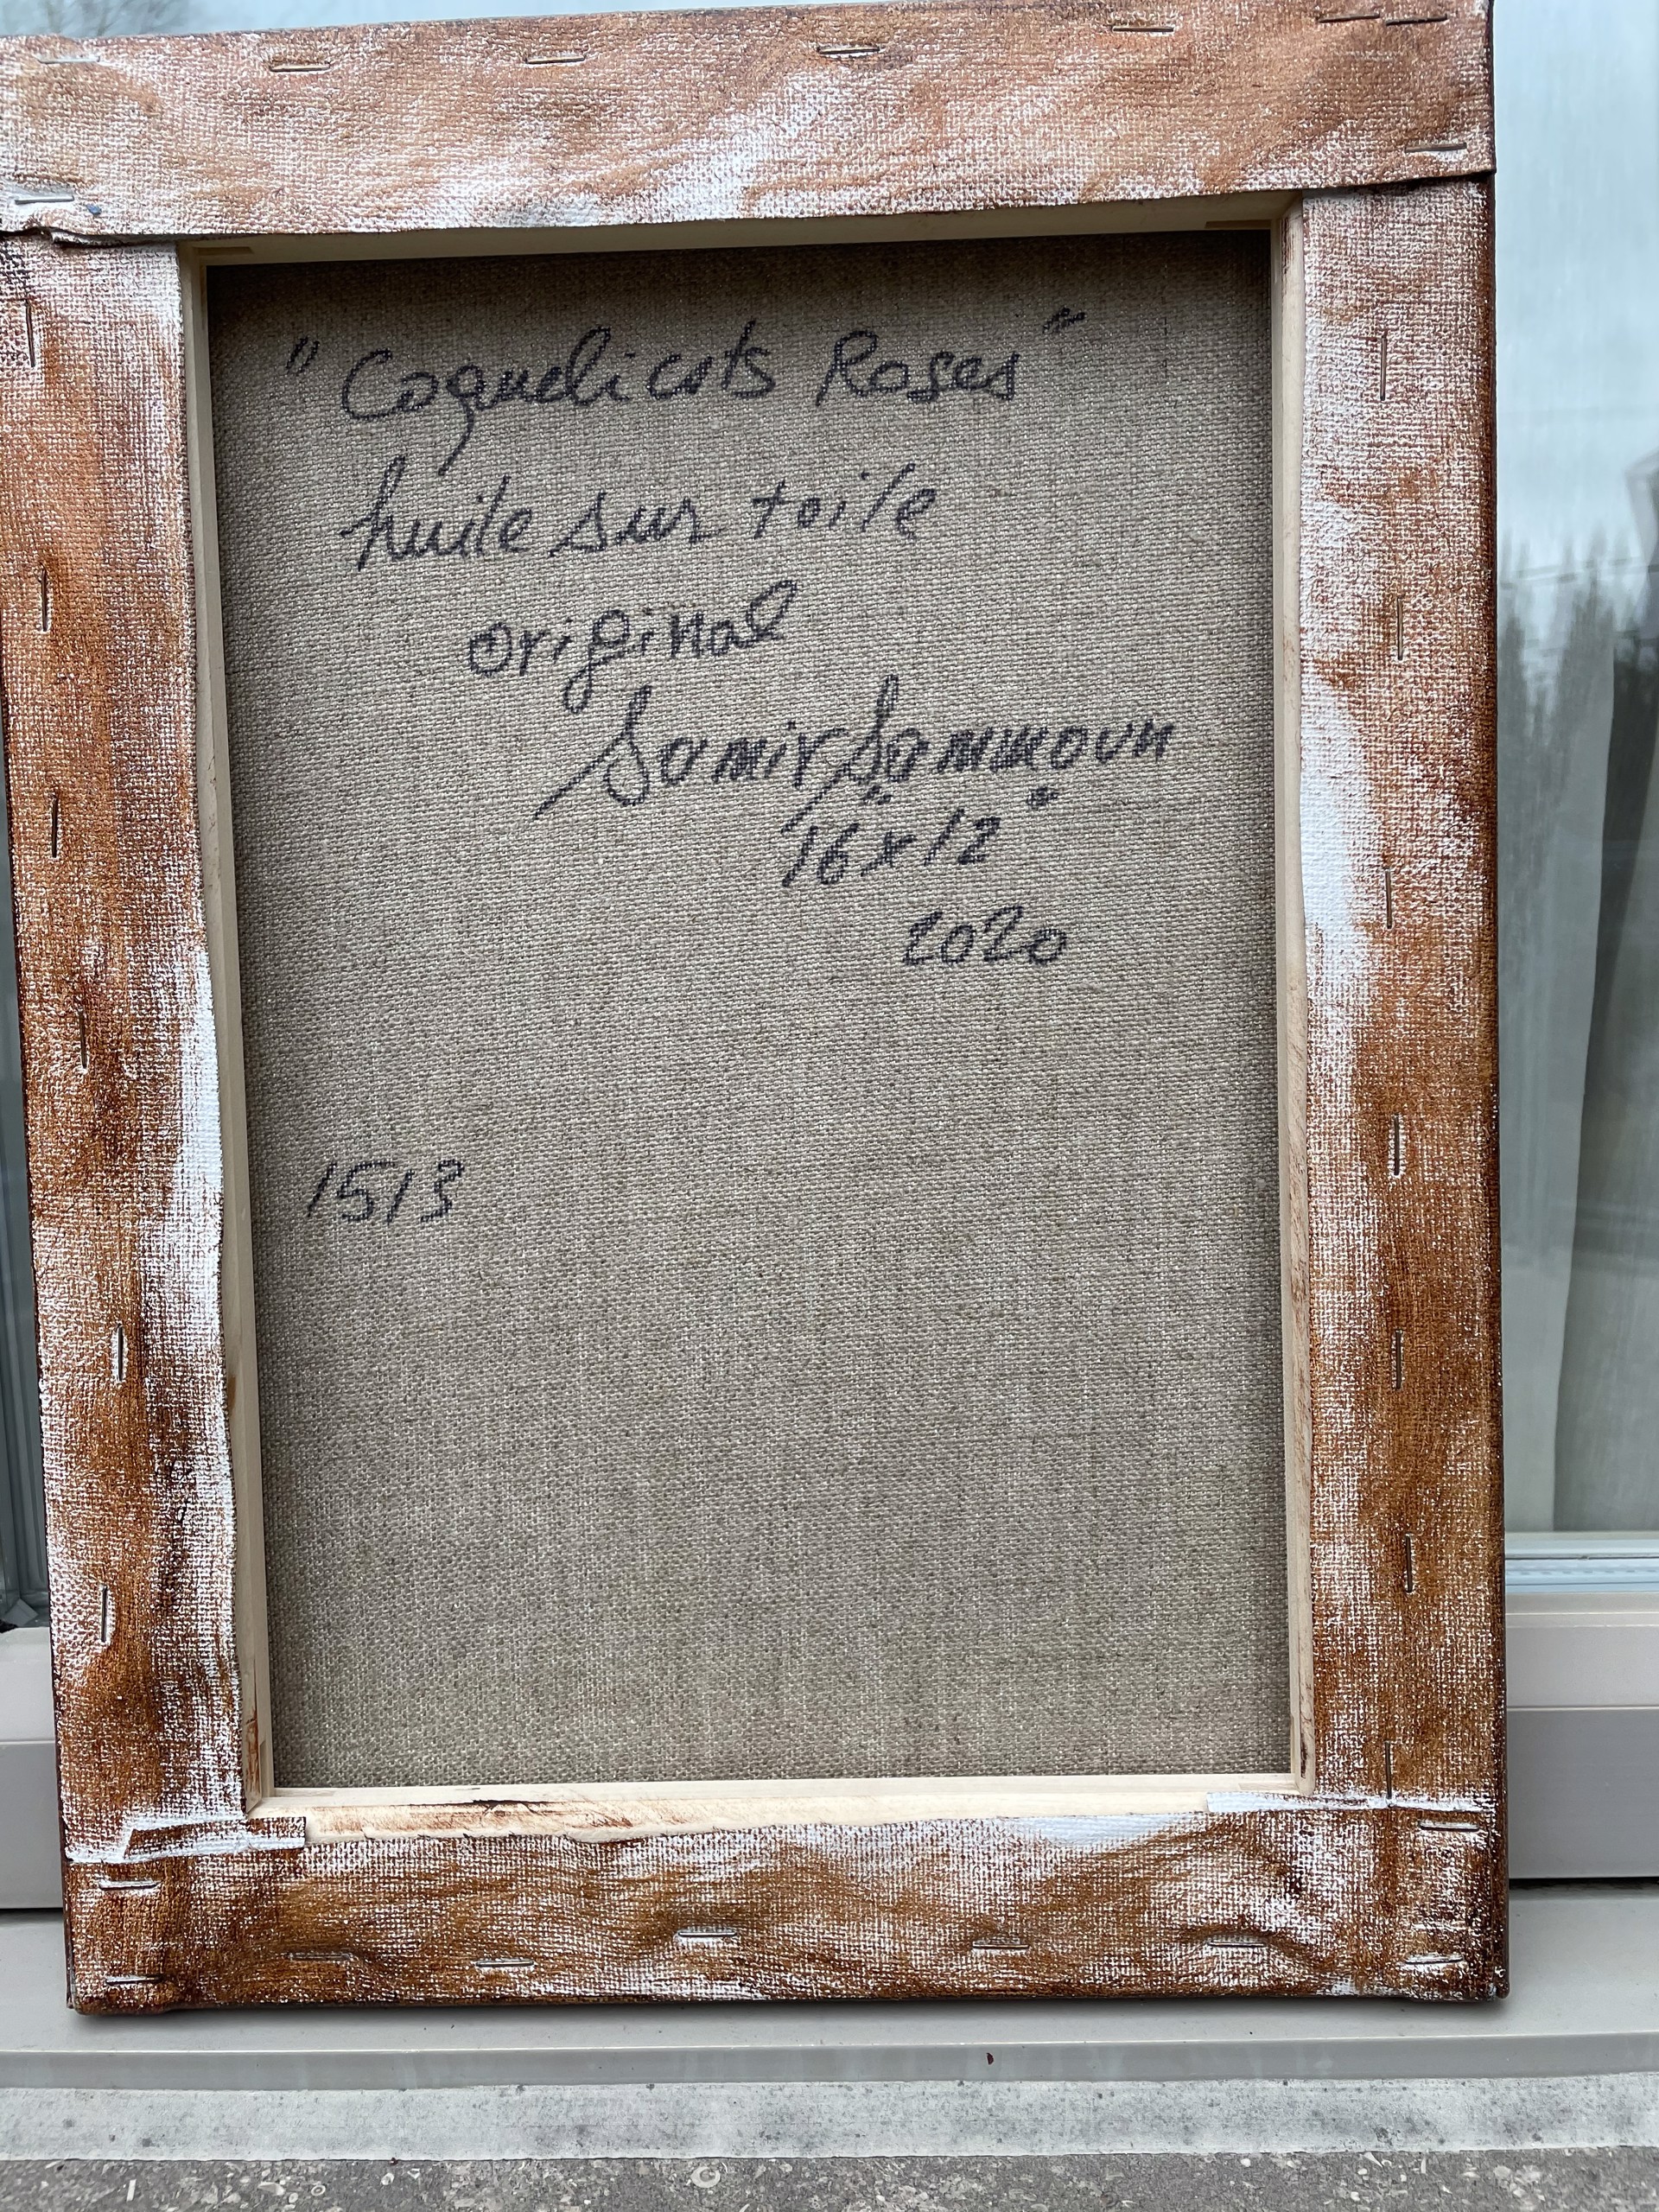 "Coquelicots Roses"
huile sur toile
original
Samir Sammoun
16" x 12"
2020
1513